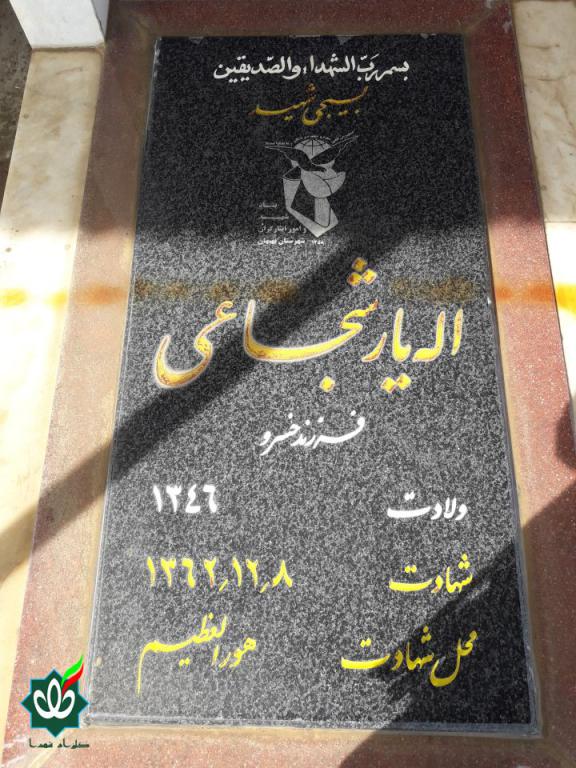 بسم رب الشهداء والصدیقین
بسیجی شهید
بنیاد
شهید
و امور ایثارگران
شهرستان بهبهان
اله یار شجاعی
فرزند خسرو
ولادت ۱۳۴۶
شهادت ۱۳۶۲/۱۲/۸
محل شهادت هورالعظیم
گلزار شهدا